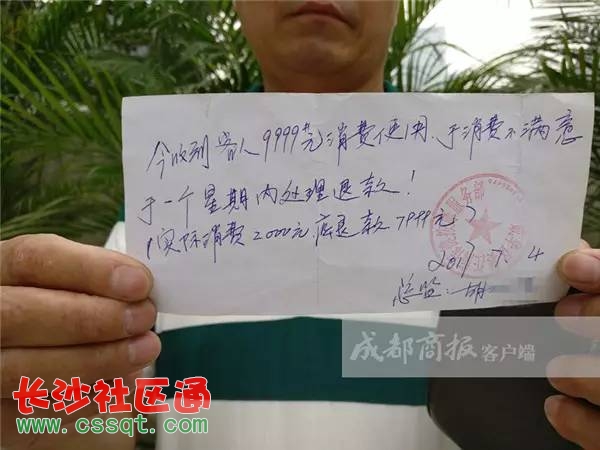 今收到客人9999元消费使用、于消费不满意
于一个星期内处理退款!
(实际消费2000元.底退款7999元)
服务部
2017 7. 4
总监:胡
成都商报客户端
长沙社区通
www.cssqt.com